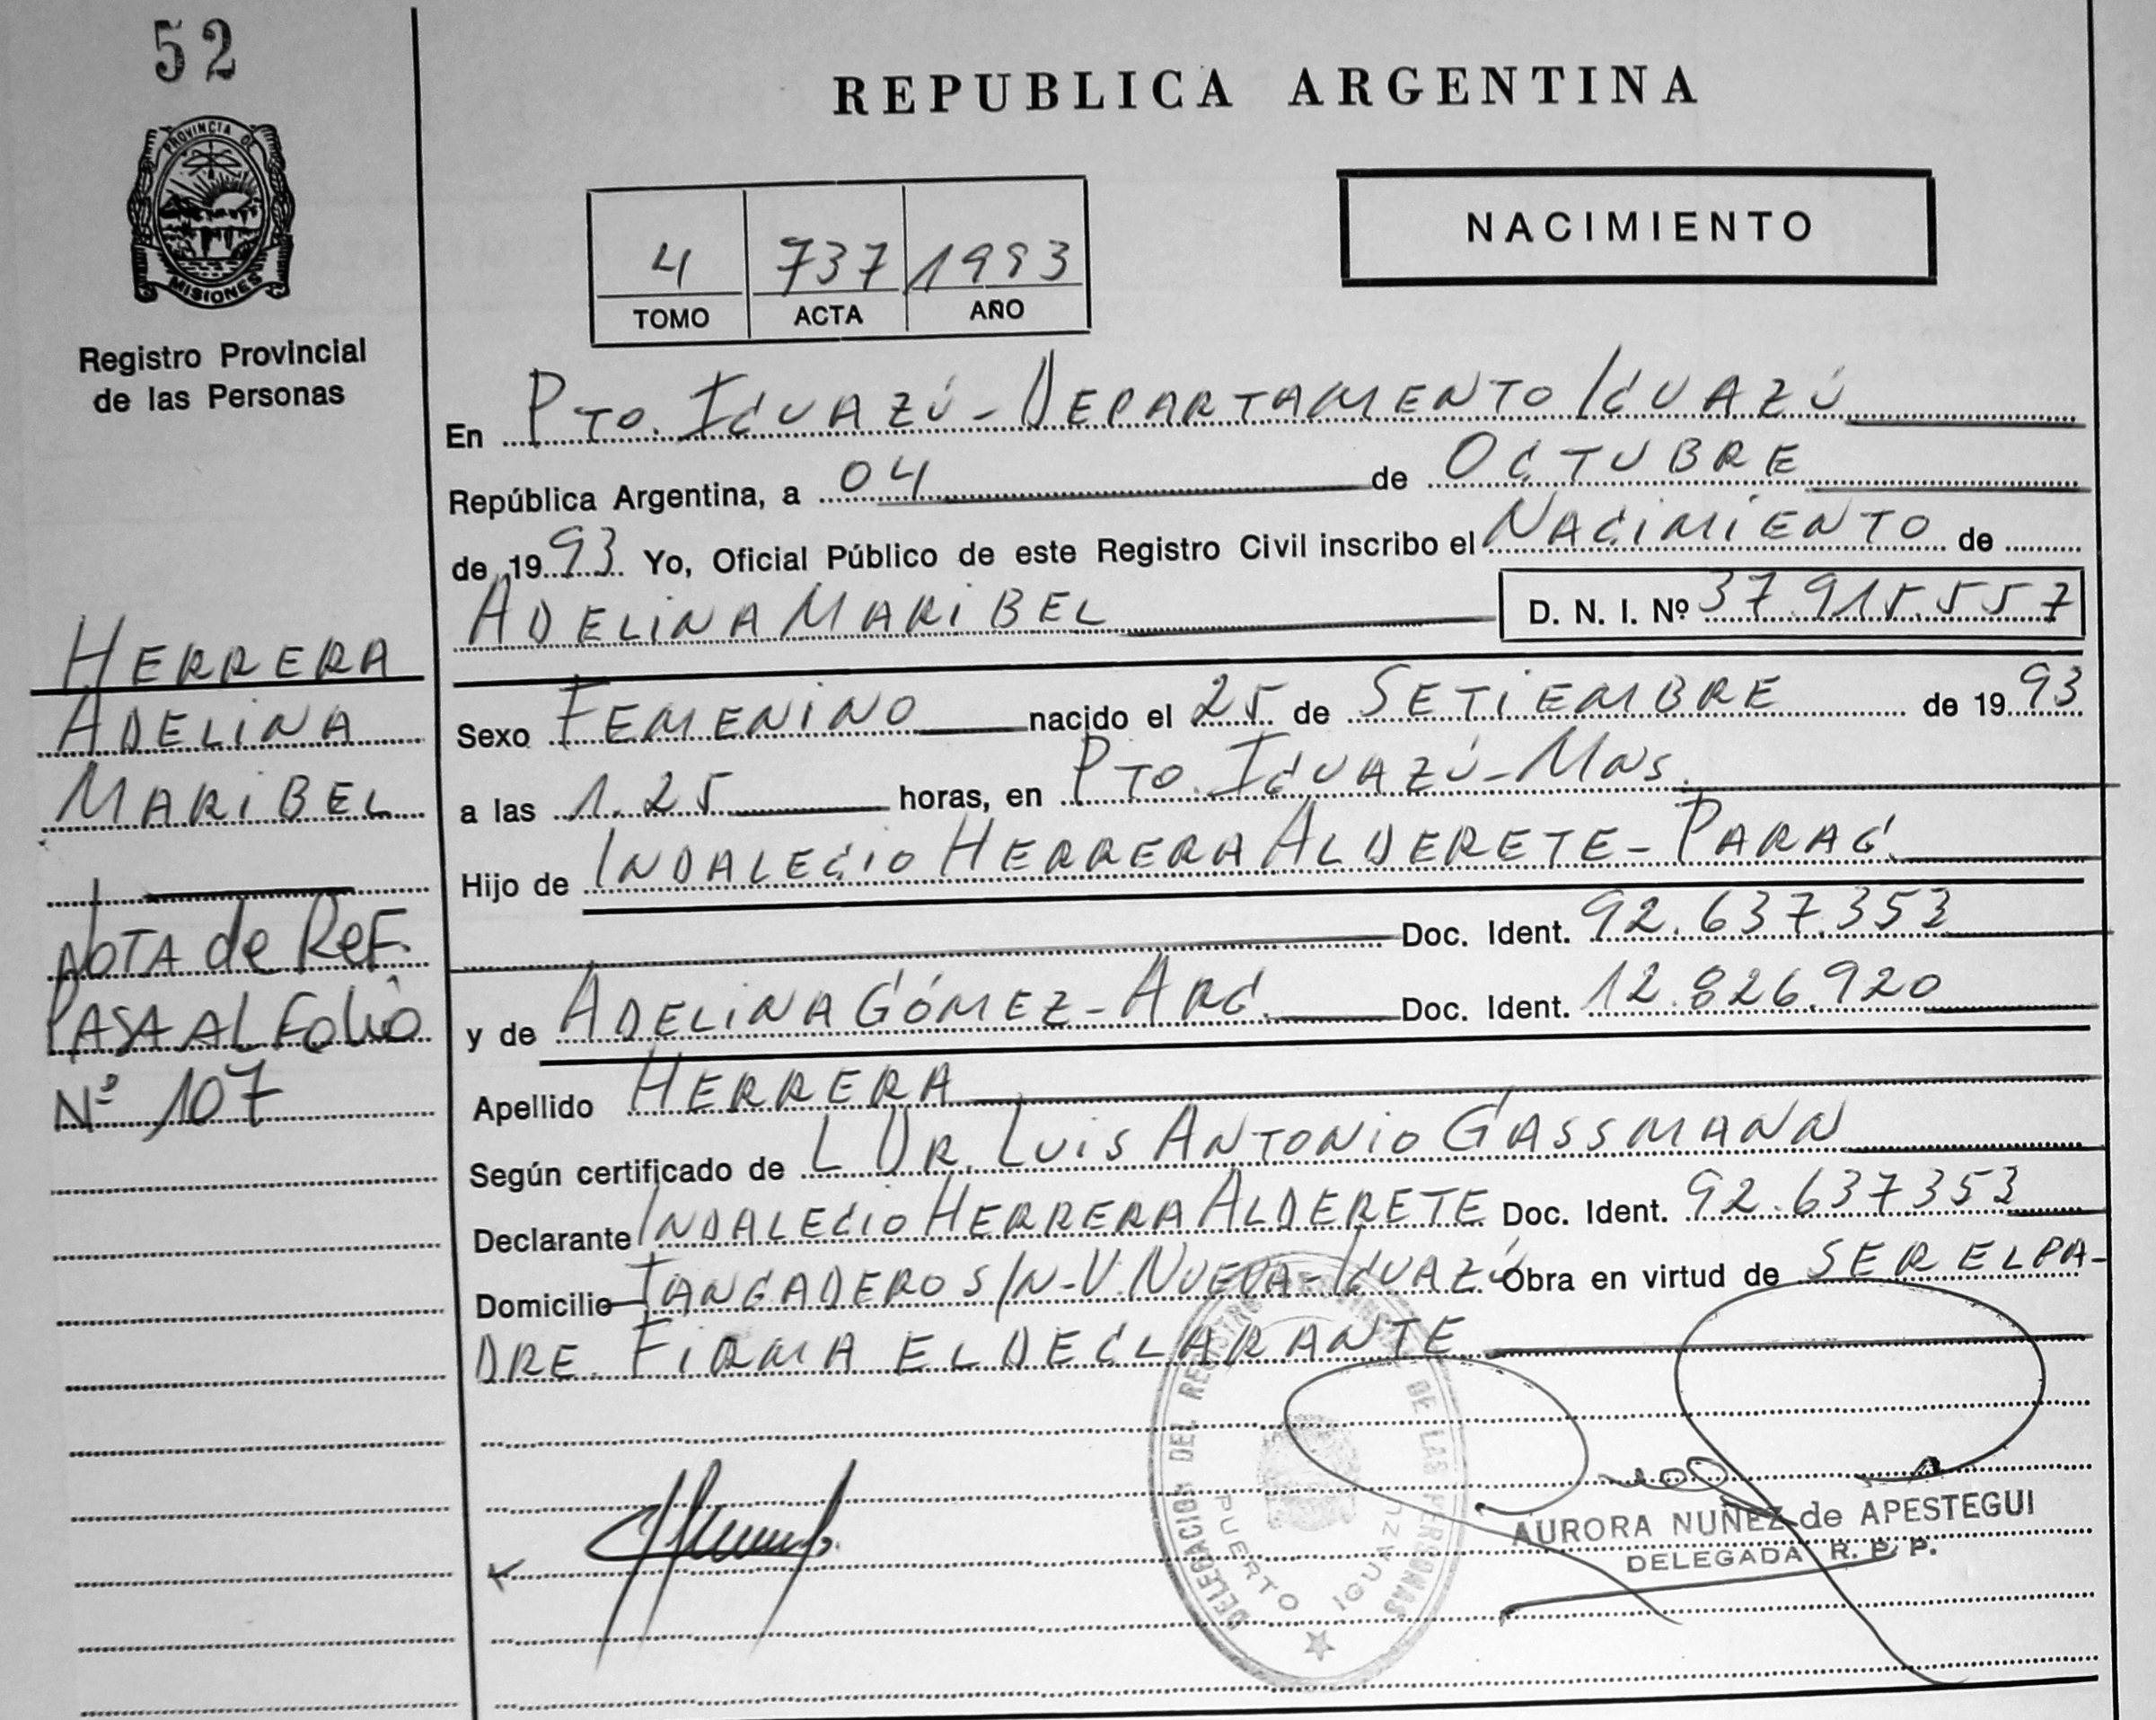 52
PROVINCIA DE
MISIONES
Registro Provincial
de las Personas
HERRERA
ADELINA
MARIBEL
NOTA de REF.
PASA AL Folio
Nº 107
REPUBLICA ARGENTINA
4 737 1993
TOMO ACTA AÑO
NACIMIENTO
En PTO. IGUAZÚ - DEPARTAMENTO IGUAZÚ
República Argentina, a 04 de OCTUBRE
de 1993 Yo, Oficial Público de este Registro Civil inscribo el NACIMIENTO de
ADELINA MARIBEL D. N. I. Nº 37.915.557
Sexo FEMENINO nacido el 25 de SETIEMBRE de 1993
a las 1.25 horas, en PTO. IGUAZÚ - MNS.
Hijo de INDALECIO HERRERA ALDERETE - PARAG.
Doc. Ident. 92.637.353
y de ADELINA GÓMEZ - ARG. Doc. Ident. 12.826.920
Apellido HERRERA
Según certificado de L DR. LUIS ANTONIO GASSMANN
Declarante INDALECIO HERRERA ALDERETE Doc. Ident. 92.637353
Domicilio TANGADERO S/N - V. NUEVA - IGUAZÚ Obra en virtud de SER EL PA-
DRE. FIRMA EL DECLARANTE
DELEGACION DEL REGISTRO PROVINCIAL DE LAS PERSONAS
PUERTO IGUAZU
AURORA NUÑEZ de APESTEGUI
DELEGADA R. P. P.